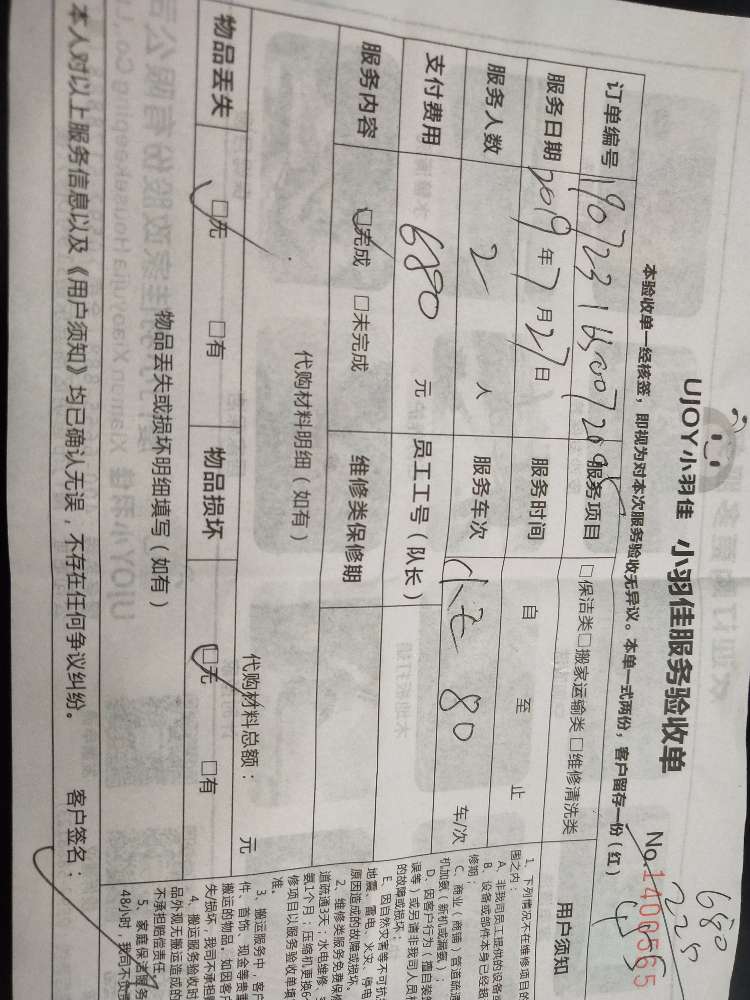 UJOY小羽佳 小羽佳服务验收单
No.1400565
680
225
本验收单一经核签，即视为对本次服务验收无异议。本单一式两份，客户留存一份（红）
订单编号
服务项目 □保洁类□搬家运输类□维修清洗类
服务日期 2019年7月27日
服务时间 自 至 止
服务人数 2 人
服务车次 80 车/次
支付费用 680 元
员工工号（队长）
服务内容 □完成 □未完成
维修类保修期
代购材料明细（如有）
代购材料总额： 元
物品丢失 □无 □有
物品损坏 □无 □有
物品丢失或损坏明细填写（如有）
本人对以上服务信息以及《用户须知》均已确认无误，不存在任何争议纠纷。 客户签名：
用户须知
1、下列情况不在维修项目的
围之内：
A、非我司员工提供的设备或
B、设备或部件本身已经超
修期；
C、商业（商铺）管道疏通
机加氨（新机或漏氨）；
D、因客户行为（擅自装
误等）或另请非我司人员
的故障或损坏；
E、因自然灾害等不可抗
地震、雷电、火灾、停电
原因造成的故障或损坏
2、维修类服务免费保
道疏通3天；水电维修
氨1个月；压缩机更换6
修项目以服务验收单填
准。
3、搬运服务中，客户
件、首饰、现金等贵重
搬运的物品，如因客户
失损坏，我司不承担赔
4、搬运服务验收时
品外观无搬运造成的
不承担赔偿责任
5、家庭保洁服务
48小时，我司不负责